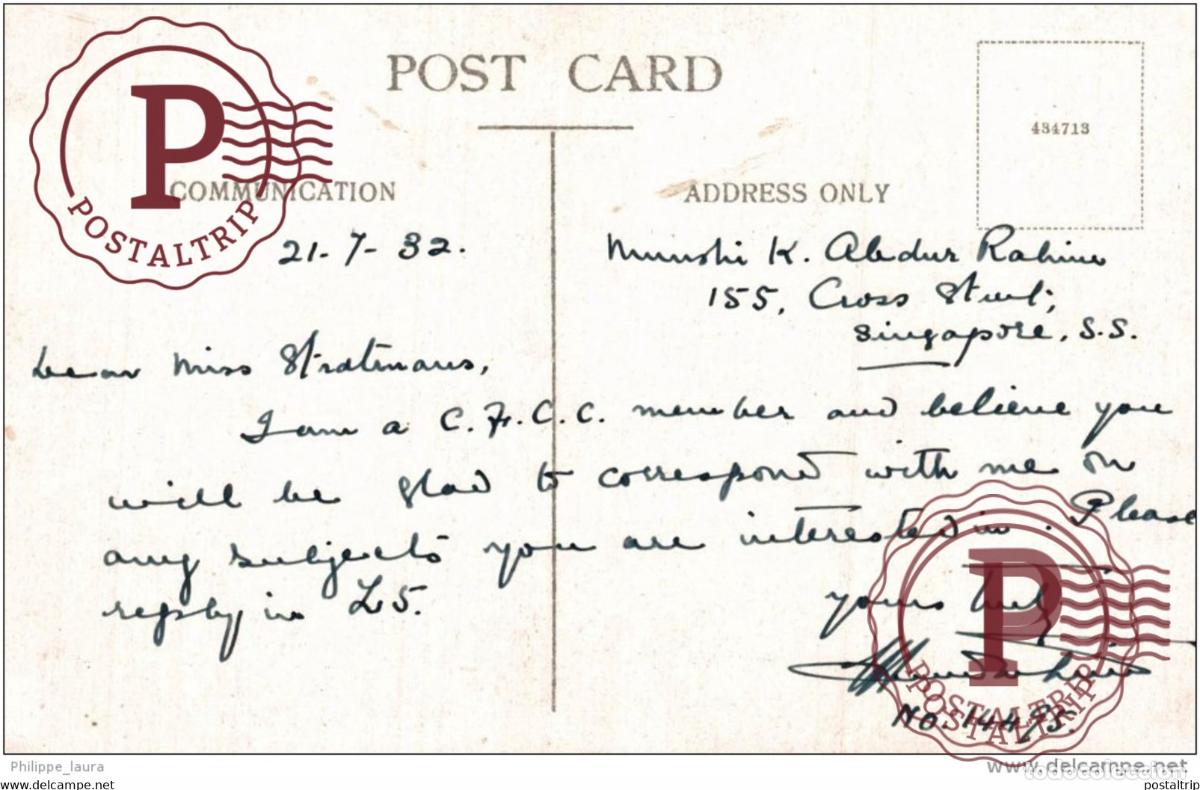 POST CARD
434713
COMMUNICATION
ADDRESS ONLY
P
POSTALTRIP
21-7-32.
Munshi K. Abdur Rahim
155, Cross Street,
Singapore, S.S.
Dear Miss Stratmans,
I am a C.F.C.C. member and believe you
will be glad to correspond with me on
any subjects you are interested in. Please
reply in L5.
yours
No. 14475.
P
POSTALTRIP
POSTALTRIP
Philippe_laura
www.delcampe.net
www.delcampe.net
todocoleccion
postaltrip